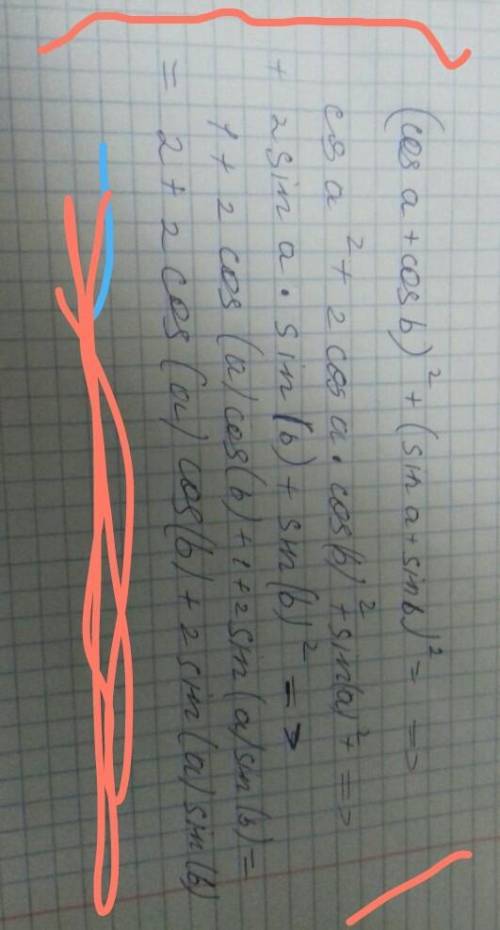 (cos a + cos b)² + (sin a + sin b)² = =>
cos a² + 2 cos a · cos(b)² + sin(a)² + =>
+ 2 sin a · sin(b) + sin(b)² = >
1 + 2 cos(a) cos(b) + 1 + 2 sin(a) sin(b) =
= 2 + 2 cos(a) cos(b) + 2 sin(a) sin(b)